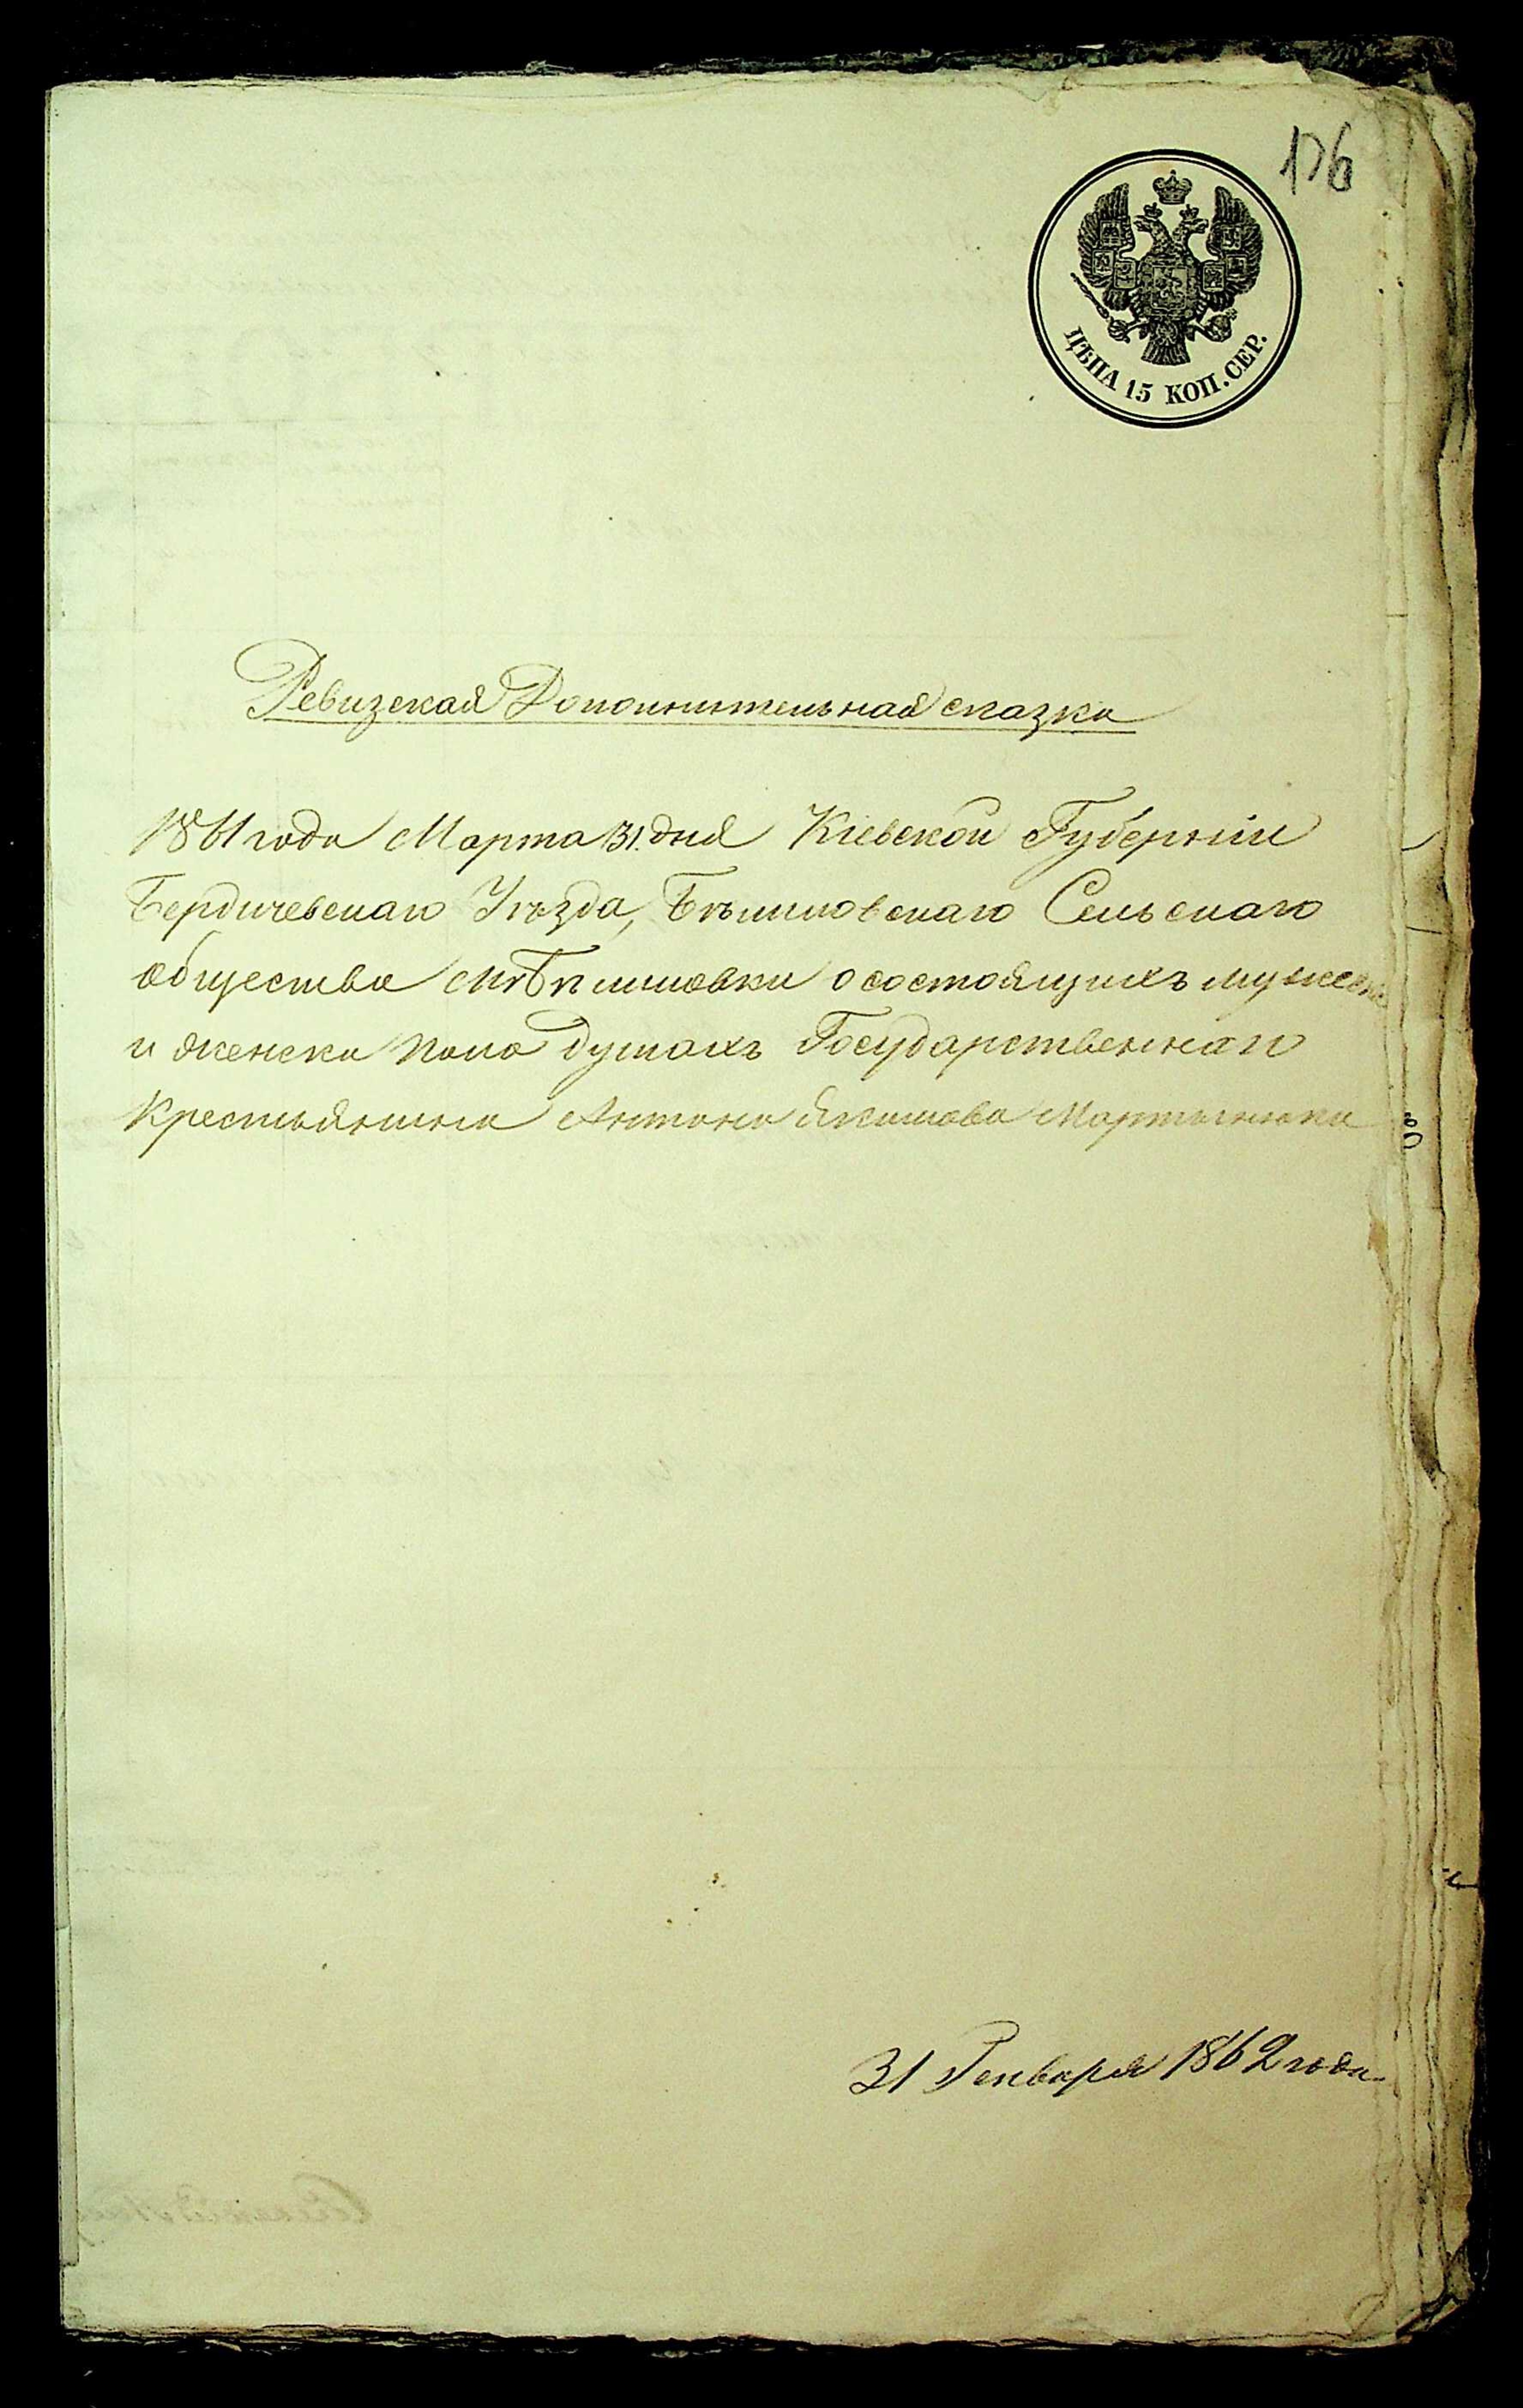 176
ЦѢНА 15 КОП. СЕР.
Ревизская Дополнительная сказка
1861 года Марта 31. дня Кіевской Губерніи
Бердичевскаго Уѣзда, Бѣлиловскаго Сельскаго
общества М. Бѣлиловки о состоящихъ мужеска
и женска пола душахъ Государственнаго
Крестьянина Антона Якимова Мартынюка
31 Генваря 1862 года